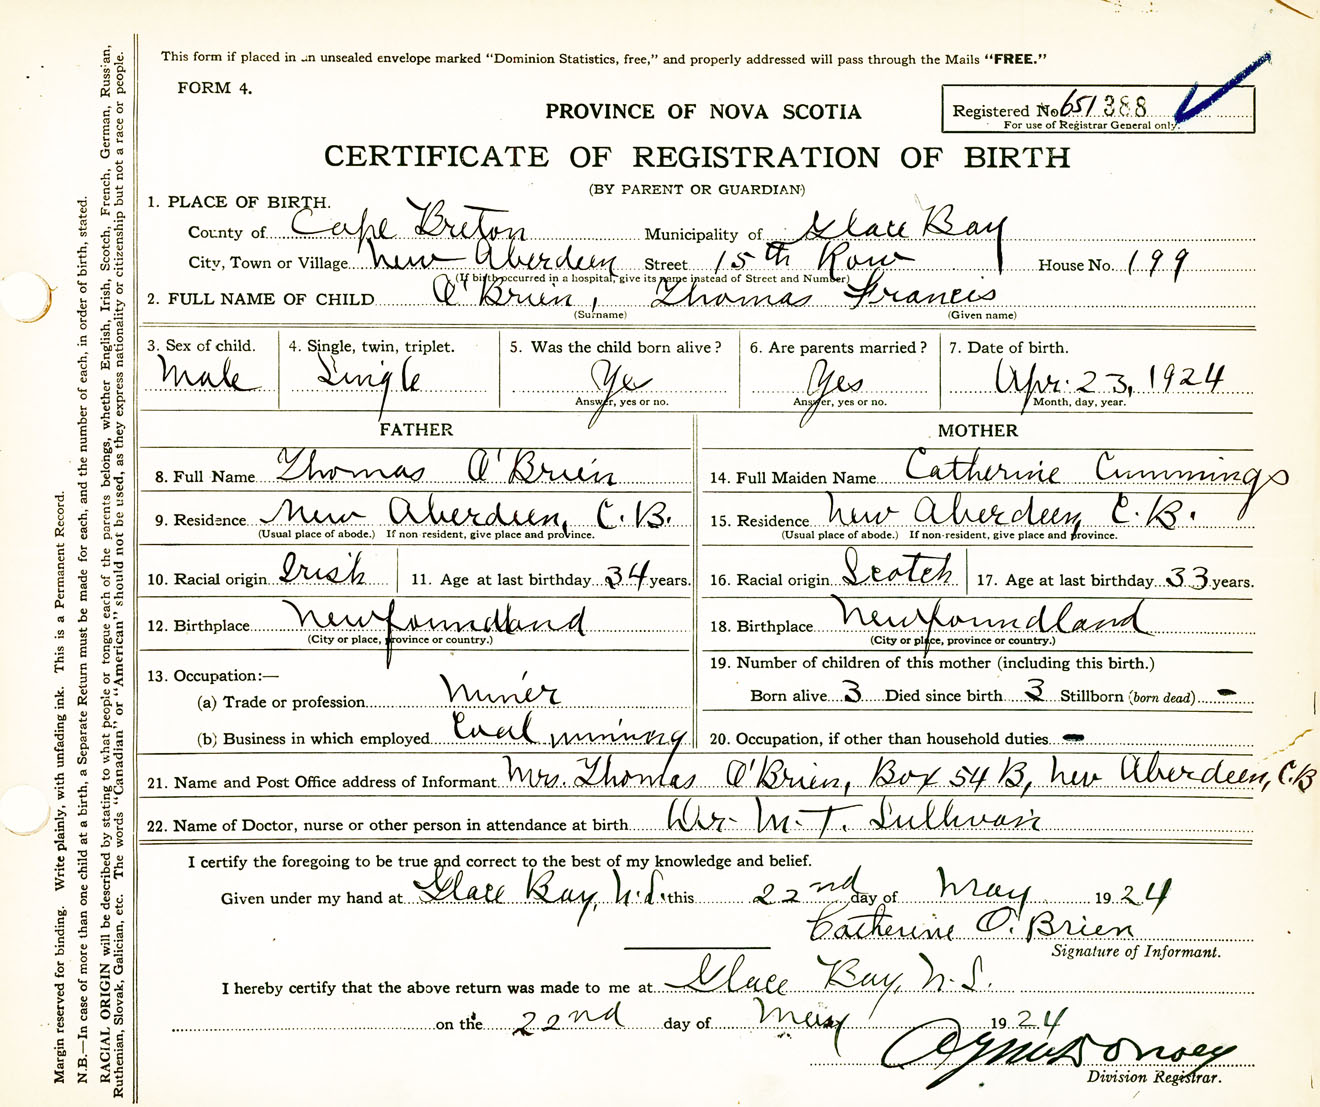 This form if placed in an unsealed envelope marked "Dominion Statistics, free," and properly addressed will pass through the Mails "FREE."
FORM 4.
PROVINCE OF NOVA SCOTIA
Registered No 651388
For use of Registrar General only.
CERTIFICATE OF REGISTRATION OF BIRTH
(BY PARENT OR GUARDIAN)
1. PLACE OF BIRTH.
County of Cape Breton Municipality of Glace Bay
City, Town or Village New Aberdeen Street 15th Row House No. 199
(If birth occurred in a hospital, give its name instead of Street and Number)
2. FULL NAME OF CHILD O'Brien, Thomas Francis
(Surname) (Given name)
3. Sex of child. 4. Single, twin, triplet. 5. Was the child born alive? 6. Are parents married? 7. Date of birth.
Male Single Yes Yes Apr. 23, 1924
Answer, yes or no. Answer, yes or no. Month, day, year.
FATHER MOTHER
8. Full Name Thomas O'Brien 14. Full Maiden Name Catherine Cummings
9. Residence New Aberdeen, C.B. 15. Residence New Aberdeen, C.B.
(Usual place of abode.) If non resident, give place and province. (Usual place of abode.) If non-resident, give place and province.
10. Racial origin Irish 11. Age at last birthday 34 years. 16. Racial origin Scotch 17. Age at last birthday 33 years.
12. Birthplace Newfoundland 18. Birthplace Newfoundland
(City or place, province or country.) (City or place, province or country.)
13. Occupation:— 19. Number of children of this mother (including this birth.)
(a) Trade or profession Miner Born alive 3 Died since birth 3 Stillborn (born dead) -
(b) Business in which employed Coal mining 20. Occupation, if other than household duties -
21. Name and Post Office address of Informant Mrs. Thomas O'Brien, Box 54 B, New Aberdeen, C.B
22. Name of Doctor, nurse or other person in attendance at birth Dr. M. T. Sullivan
I certify the foregoing to be true and correct to the best of my knowledge and belief.
Given under my hand at Glace Bay, N.S. this 22nd day of May 1924
Catherine O'Brien
Signature of Informant.
I hereby certify that the above return was made to me at Glace Bay, N.S.
on the 22nd day of May 1924
Division Registrar.
Margin reserved for binding. Write plainly, with unfading ink. This is a Permanent Record.
N.B.—In case of more than one child at a birth, a Separate Return must be made for each, and the number of each, in order of birth, stated.
RACIAL ORIGIN will be described by stating to what people or tongue each of the parents belongs, whether English, Irish, Scotch, French, German, Russian,
Ruthenian, Slovak, Galician, etc. The words "Canadian" or "American" should not be used, as they express nationality or citizenship but not a race or people.